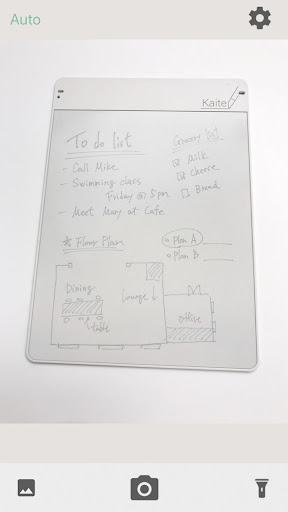 Auto
Kaite
To do list
- Call Mike
- Swimming class
Friday @ 5pm
- Meet Mary at Cafe
Grocery
Milk
Cheese
Bread
* Floor Plan
Plan A
Plan B
Dining
table
Lounge
office